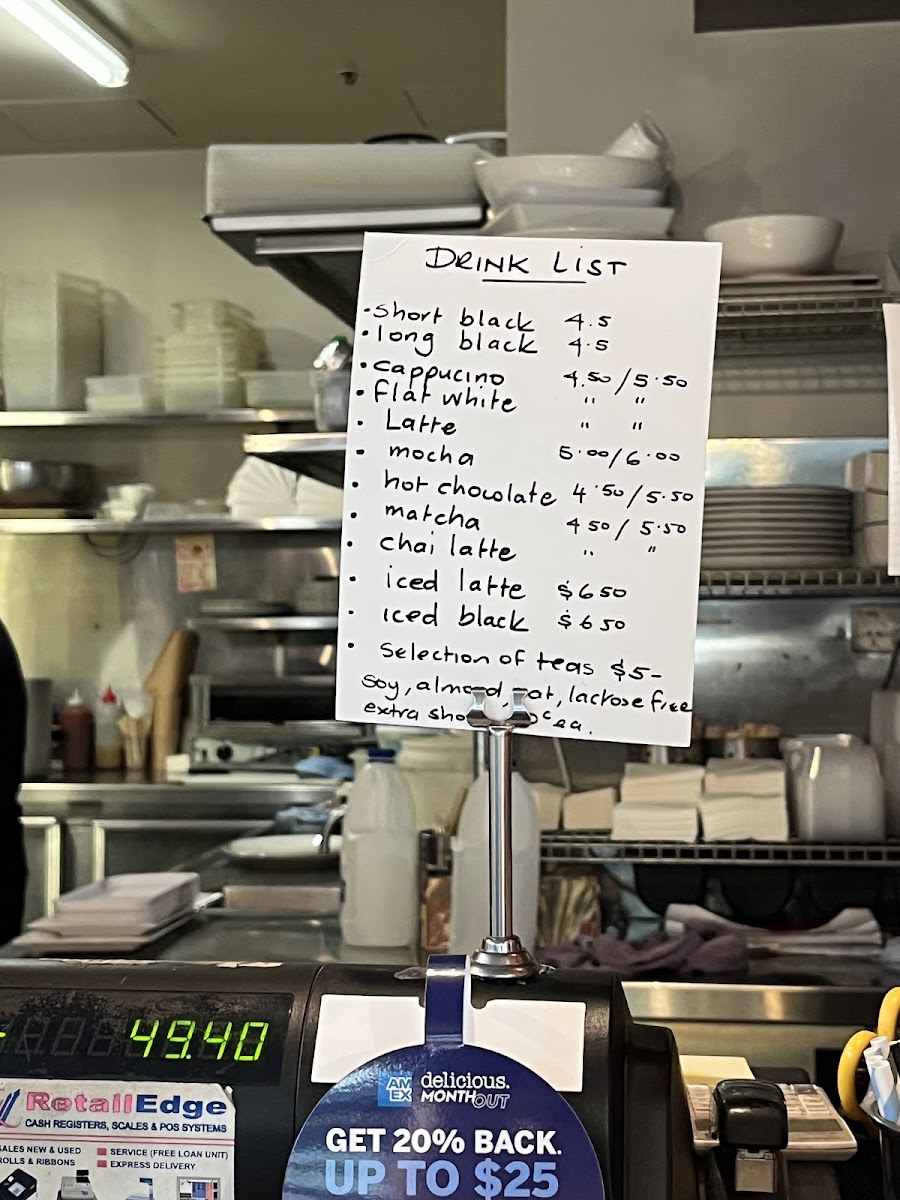 DRINK LIST
• short black 4.5
• long black 4.5
• cappucino 4.50/5.50
• flat white " "
• Latte " "
• mocha 5.00/6.00
• hot chocolate 4.50/5.50
• matcha 4 50/5.50
• chai latte " "
• iced latte $6 50
• iced black $6 50
• Selection of teas $5-
Soy, almond, oat, lactose free
extra ea.
49.40
RetailEdge
CASH REGISTERS, SCALES & POS SYSTEMS
SALES NEW & USED
SERVICE (FREE LOAN UNIT)
ROLLS & RIBBONS
EXPRESS DELIVERY
AMEX
delicious.
MONTH OUT
GET 20% BACK.
UP TO $25